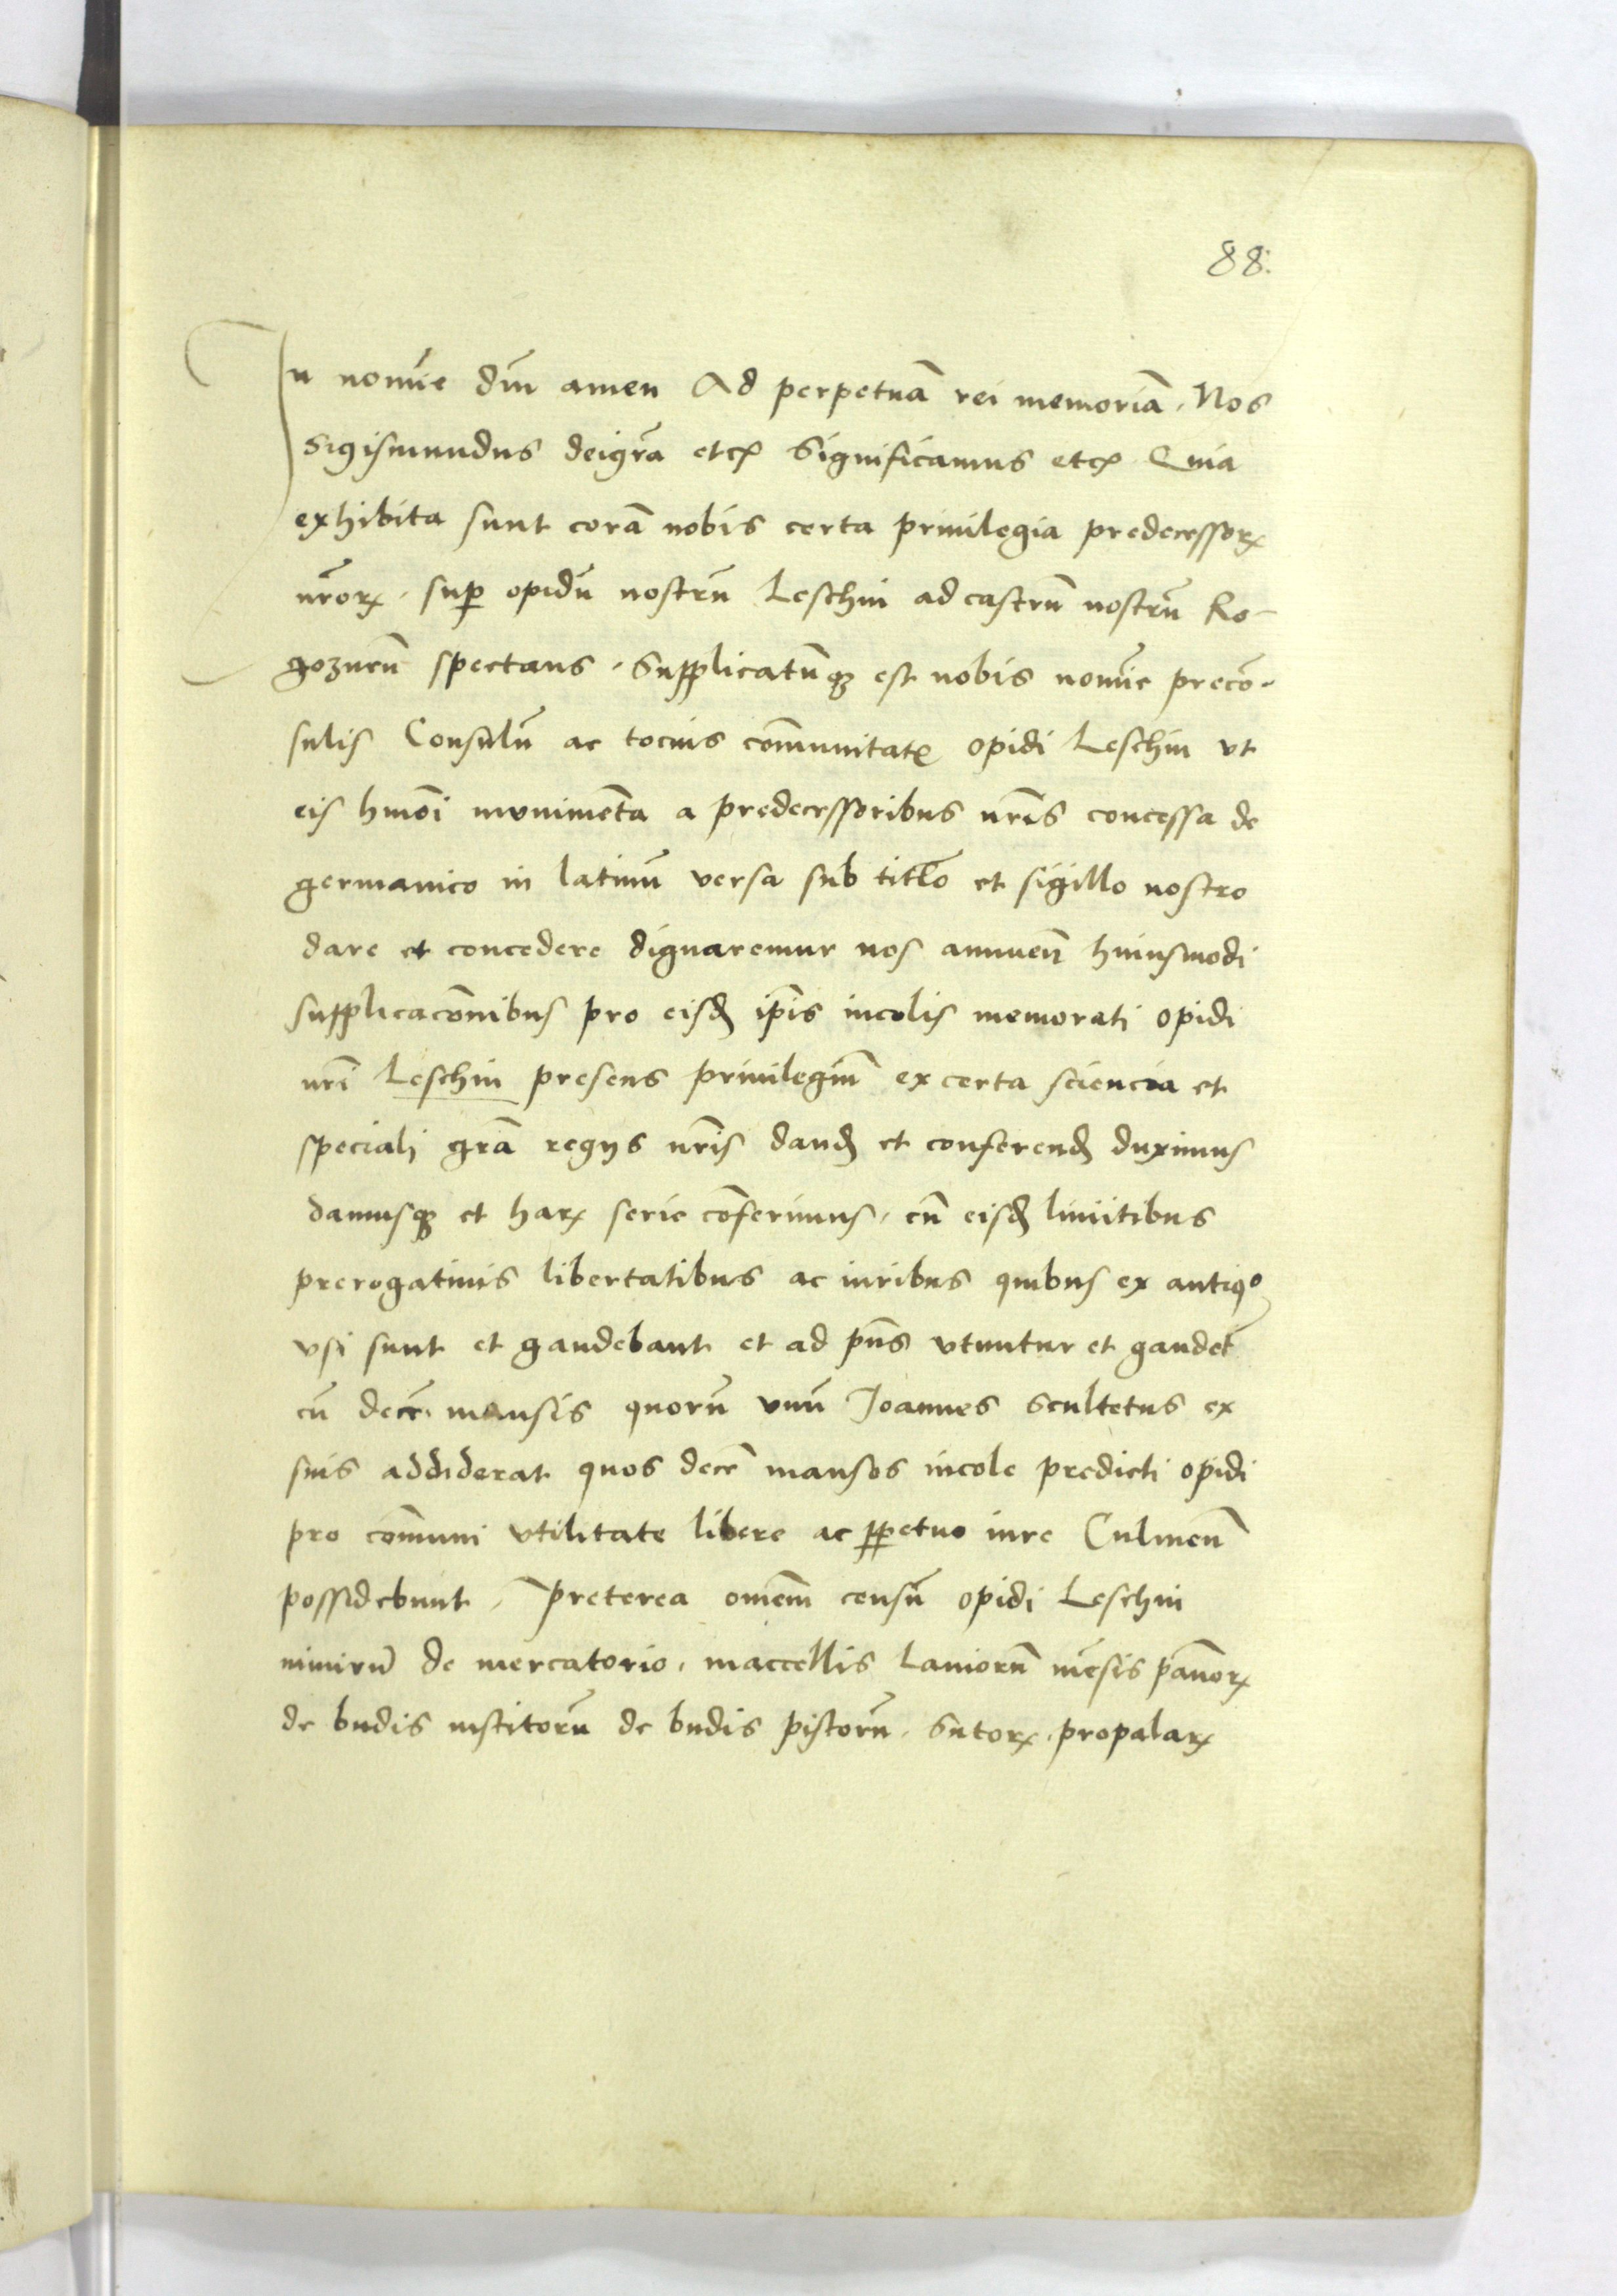 88.
In nomīe dn̄i amen Ad perpetuā rei memoriā. Nos
Sigismundus deigrā etcꝫ Significamus etcꝫ Quia
exhibita sunt corā nobis certa priuilegia predecessorꝝ
nr̄orꝝ. suꝑ opidū nostrū Leschin ad castrū nostrū Ro-
goznenn̄ spectans. Supplicatūqꝫ est nobis nomīe precō-
sulis Consulū ac tocius com̄unitatꝭ opidi Leschin vt
eis hmōi munimēta a predecessoribus nr̄is concessa de
germanico in latinū versa sub titl̄o et sigillo nostro
dare et concedere dignaremur nos annuen̄ huiusmodi
supplicacōnibus pro eisdꝫ ip̄is incolis memorati opidi
nr̄i Leschin presens priuilegiū ex certa sciencia et
speciali grā regijs nr̄is dandꝫ et conferendꝫ duximus
damusqꝫ et harꝝ serie cōferimus. cū eisdꝫ limitibus
prerogatiuis libertatibus ac iuribus quibus ex antiqᵒ
vsi sunt et gaudebant et ad pn̄s vtuntur et gaudēt
cū decē mansis quorū vnū Joannes Scultetus ex
suis addiderat quos decē mansos incole predicti opidi
pro com̄uni vtilitate libere ac ꝑpetuo iure Culmen̄
possidebunt. Preterea om̄em censū opidi Leschin
nimirū de mercatorio. maccellis Laniorū mēsis pānorꝝ
de budis institorū de budis pistorū. Sutorꝝ. propalarꝝ